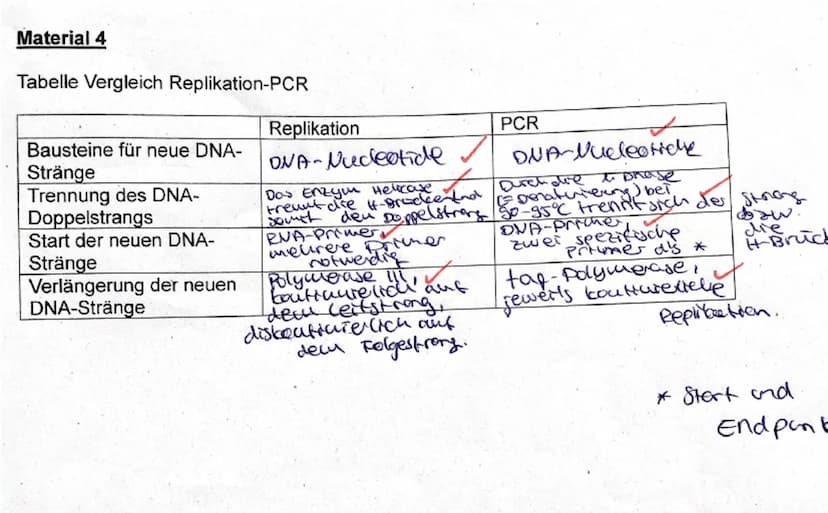 Material 4
Tabelle Vergleich Replikation-PCR
Replikation
PCR
Bausteine für neue DNA-
Stränge
DNA-Nucleotide
DNA-Nucleotide
Trennung des DNA-
Doppelstrangs
Das Enzym Helicase
trennt die H-Brücken und
somit den Doppelstrang
Durch die 1. Phase
(=Denaturierung) bei
90-95°C trennt sich der
Strang
bzw.
die
H-Brüc
Start der neuen DNA-
Stränge
RNA-Primer
mehrere Primer
notwendig
DNA-Primer,
zwei spezifische
Primer als *
Verlängerung der neuen
DNA-Stränge
Polymerase III,
kontinuierlich auf
dem Leitstrang,
diskontinuierlich auf
dem Folgestrang.
taq-Polymerase,
jeweils kontinuierliche
Replikation.
* Start und
Endpunk